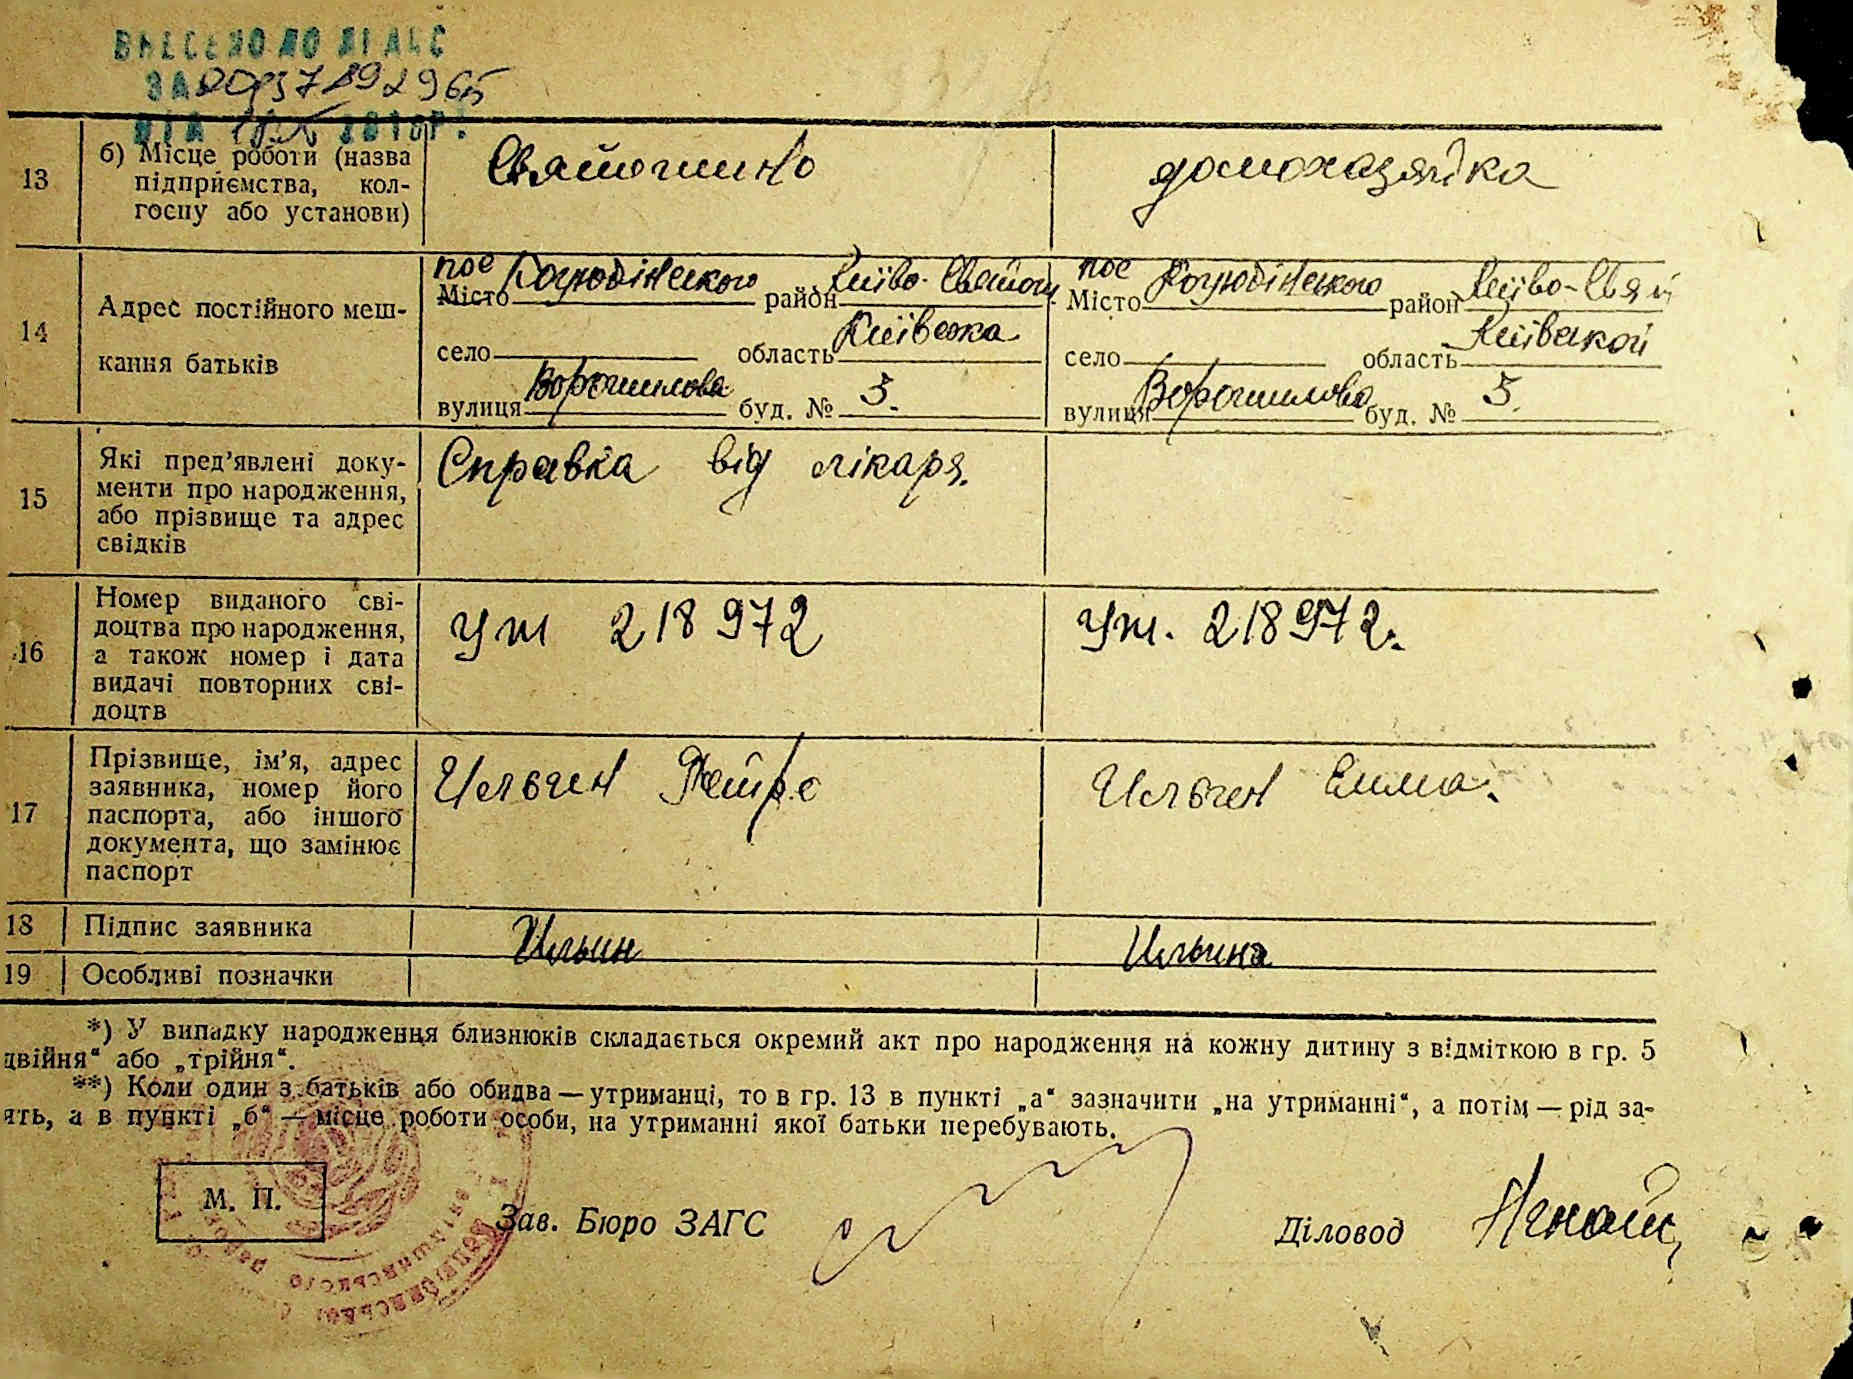 ВНЕСЕНО ДО ДРАЦС
ЗА
13 б) Місце роботи (назва підприємства, колгоспу або установи) Святошино домохазяйка
14 Адрес постійного мешкання батьків
пос Коцюбінського район Київо-Святош пос Коцюбінського район Київо-Свят
Місто Місто
село область Київська село область Київської
вулиця Ворошилова буд. № 5. вулиця Ворошилова буд. № 5.
15 Які пред’явлені доку-
менти про народження,
або прізвище та адрес
свідків
Справка від лікаря.
16 Номер виданого сві-
доцтва про народження,
а також номер і дата
видачі повторних сві-
доцтв
УЖ 218972 УЖ. 218972.
17 Прізвище, ім’я, адрес
заявника, номер його
паспорта, або іншого
документа, що замінює
паспорт
Ильчен Петро Ильчен Емма.
18 Підпис заявника Ильин Ильина
19 Особливі позначки
*) У випадку народження близнюків складається окремий акт про народження на кожну дитину з відміткою в гр. 5
двійня“ або „трійня“.
**) Коли один з батьків або обидва — утриманці, то в гр. 13 в пункті „а“ зазначити „на утриманні“, а потім — рід за-
ять, а в пункті „б“ — місце роботи особи, на утриманні якої батьки перебувають.
М. П.
Зав. Бюро ЗАГС Діловод